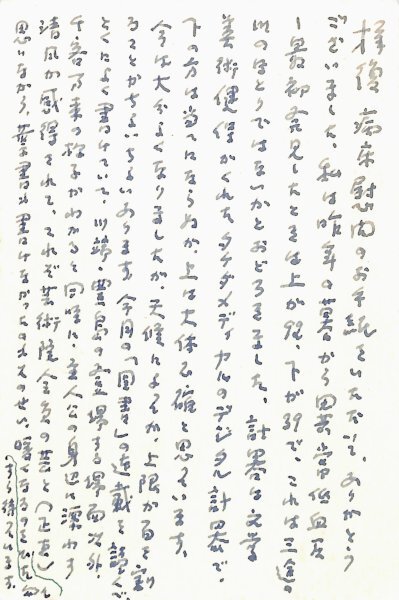 拝復 病床慰問のお手紙をいただいて、ありがとう
ございました。私は昨年の暮から異常低血圧
一番初発見したときは上が92、下が39で、これは三途の
川のほとりではないかとおどろきました。計器は文學
美術健保がくれたタケダメディカルのデジタル計器で、
下の方は当てにならぬが、上は大体正確と思ています。
今は大分よくなりましたが、天候によるが、上限が百を割
ることがちょいちょいあります。今月の「図書」の連載を読んで、
とくによく書けていて、川端・豊島の登場する場面以外、
千客万来の様子がわかると同時に、主人公の身辺に漂わす
清風が感得されて、これぞ芸術院会員の芸と（正直）も
思いながら、葉書は書けなかったのでそのせい。暖くなるのを
まち待ています。